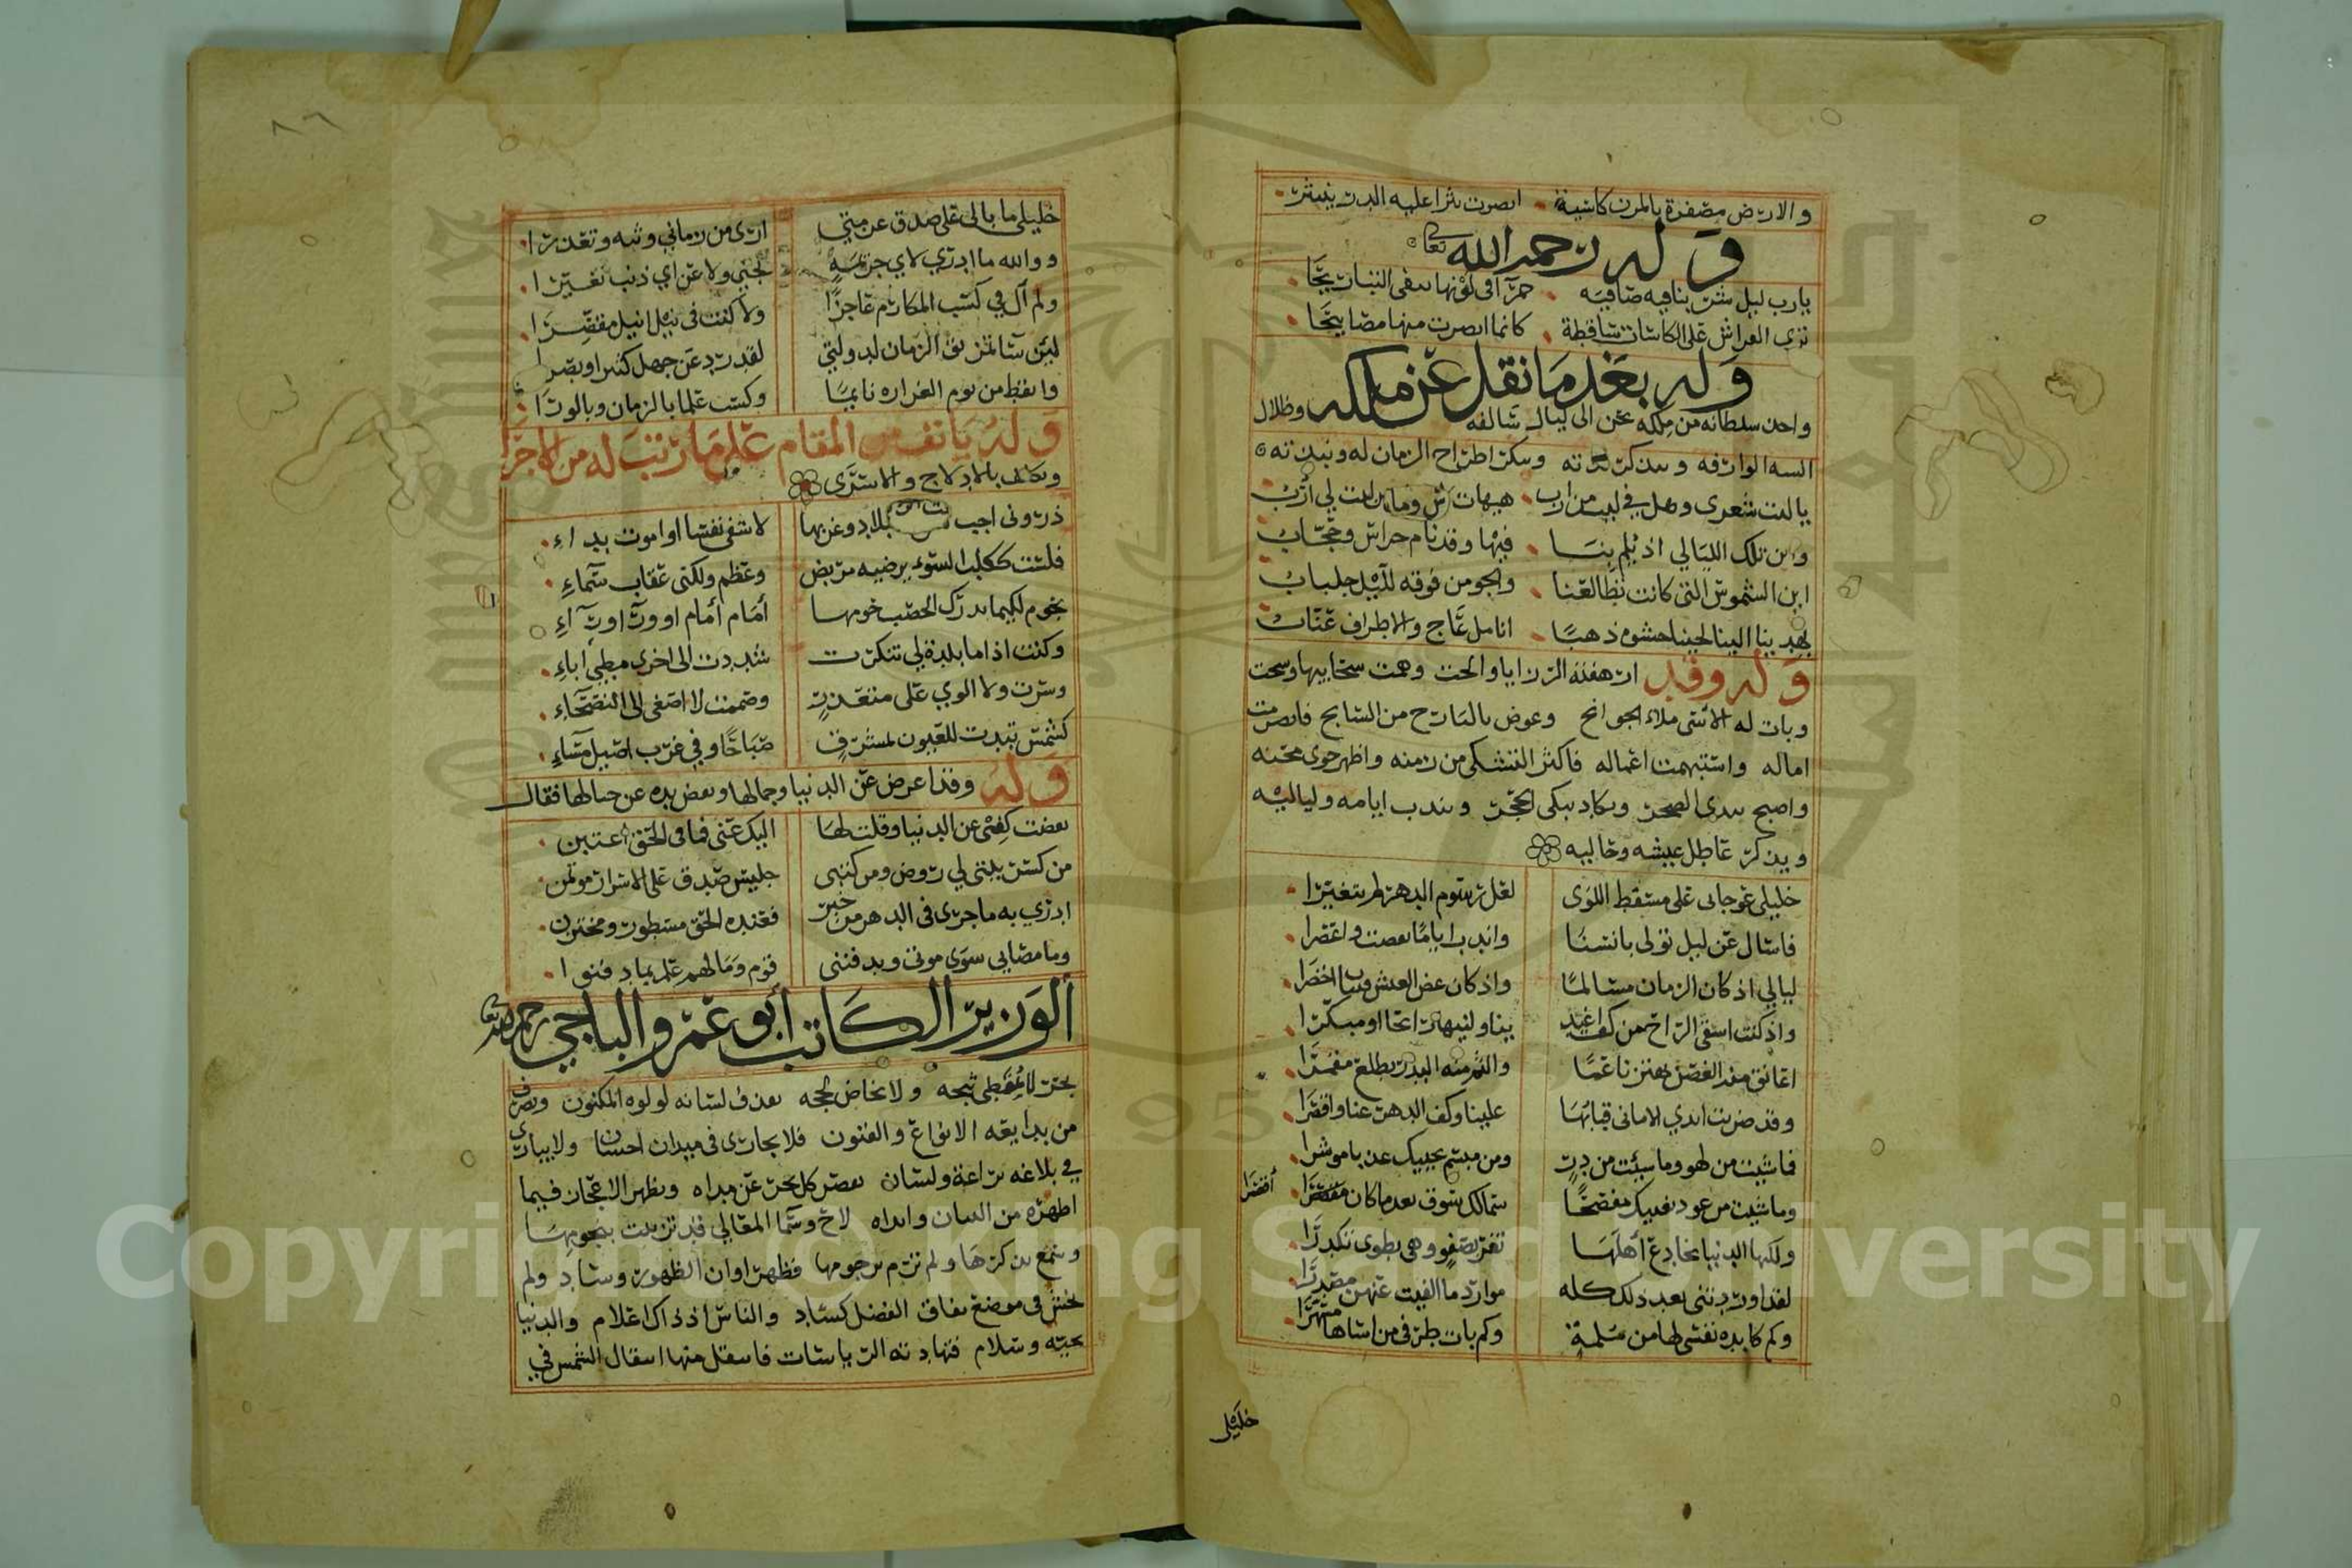 والارض مصفرة بالمزن كاسية ابصرت تبرا عليه الدر ينتثر
وله رحمه الله تعالى
يارب ليل شربنا فيه صافية حمرآ في لونها تنفي التباريحا
تري الفراش على الكاسات ساقطة كانما ابصرت منها مصابيحا
وله بعد ما نقل عن ملكه
واحدن سلطانه من ملكه يحن الى ليال سالفه وظلال
السه الوارفه ويتذكر لذته وينكر اطراح الزمان له ونبذته
ياليت شعرى وهل في ليت من ارب هيهات لي أرب
واين تلك الليالي اذ تلم بنا فيها وقد نام حراس وحجاب
اين الشموس التى كانت تطالعنا والجو من فوقه لليل جلباب
تهدي بنا الينا لجينا حشوه ذهبا انامل عاج والاطراف عناب
وله وقد ارهفته الرزايا والحت وهمت سحايبها وسحت
وبات له الأسى ملاء الجوانح وعوض بالبارح من السانح فانصرمت
اماله واستبهمت اعماله فاكثر التشكى من زمنه واظهر جوى محنه
واصبح يبدى الضجر ويكاد يبكى الحجر ويندب ايامه ولياليه
ويذكر عاطل عيشه وحاليه
خليلي عوجابى على مسقط اللوى لعل رسوم الدهر لم يتغيرا
فاسال عن ليل تولى بانسنا واندب اياما تقضت واعصرا
ليالي اذ كان الزمان مسالما واذ كان غض العيش اخضرا
واذ كنت اسقى الراح من كف اغيد يناولنيها رائحا او مبكرا
اعانق منه الغصن يهتز ناعما والثم منه البدر يطلع مقمرا
وقد ضربت ايدي الاماني قبابها علينا وكف الدهر عنا واقصرا
فماشيت من لهو وماشيت من دد ومن مبسم يجنيك عذبا موشرا
وماشيت من عود يغنيك مفصحا سمالك شوق بعد ما كان اقصرا
أقصرا
ولكنها الدنيا تخادع أهلها تغر بصفو وهى تطوى تكدرا
لقد اوردتنى بعد ذلك كله موارد ما الفيت عنهن مصدرا
وكم كابده نفسى لها من ملمة وكم بات طرفى من اساها مسهرا
خليلي
٨٦
خليلى ما بالى على صدق عزمتي ارى من زمانى ونية وتعذرا
ووالله ما ادرى لاى جريمة تجنى ولا عن اي ذنب تغيرا
ولم آل في كسب المكارم عاجزا ولا كنت فى نيل انيل مقصرا
لين سا تمزيق الزمان لدولتي لقد رد عن جهل كثير وبصرا
وايقظ من نوم الغراره نايما وكسب علما بالزمان وبالورا
وله يانف من المقام على مارتب له من الاجرا
ويكلف بالادلاج والاسرى
ذرونى اجب بلاد وغربها لاشفى نفسا او اموت بداء
فلست ككلب السوء يرضيه مربض وعظم ولكنى عقاب سماء
تحوم لكيما يدرك الخصب حومها أمام أمام او ورآ اورآء
وكنت اذا ما بلدة لي تنكرت شددت الى اخرى مطي اباء
وسرت ولا الوي على متعذر وصممت لا اصغى الى النصحاء
كشمس تبدت للعيون لمشرق صباحا وفي غرب اصيل مساء
وله وقد اعرض عن الدنيا وجمالها ونفض يده عن حبالها فقال
نفضت كفى عن الدنيا وقلت لها اليك عنى فما فى الحق اغتبن
من كسر بيتى لي روض ومن كتبى جليس صدق على الاسرار موتمن
ادري به ما جرى فى الدهر من خبر فعنده الحق مسطور ومختزن
وما مصابى سوى موتى ويدفننى قوم وما لهم علم بما دفنوا
الوزير الكاتب أبو عمرو الباجي رحمه الله تعالى
بحر لا يغطى ثبجه ولا يخاض لججه يقذف لسانه لولوه المكنون ويصرف
من بدايعه الانواع والفنون فلا يجارى فى ميدان احسان ولا يبارى
في بلاغه يراعة ولسان يقصر كل بحر عن مداه ويظهر الاعجاز فيما
اظهره من البيان وابداه لاح وسما المعالي قد تزينت بنجومها
وسمع بذكرها ولم ترم برجومها فظهر اوان الظهور وساد ولم
يخش فى موضع نفاق الفضل كساد والناس اذ ذاك اعلام والدنيا
تحيه وسلام فتهادته الرياسات فانتقل منها انتقال الشمس في